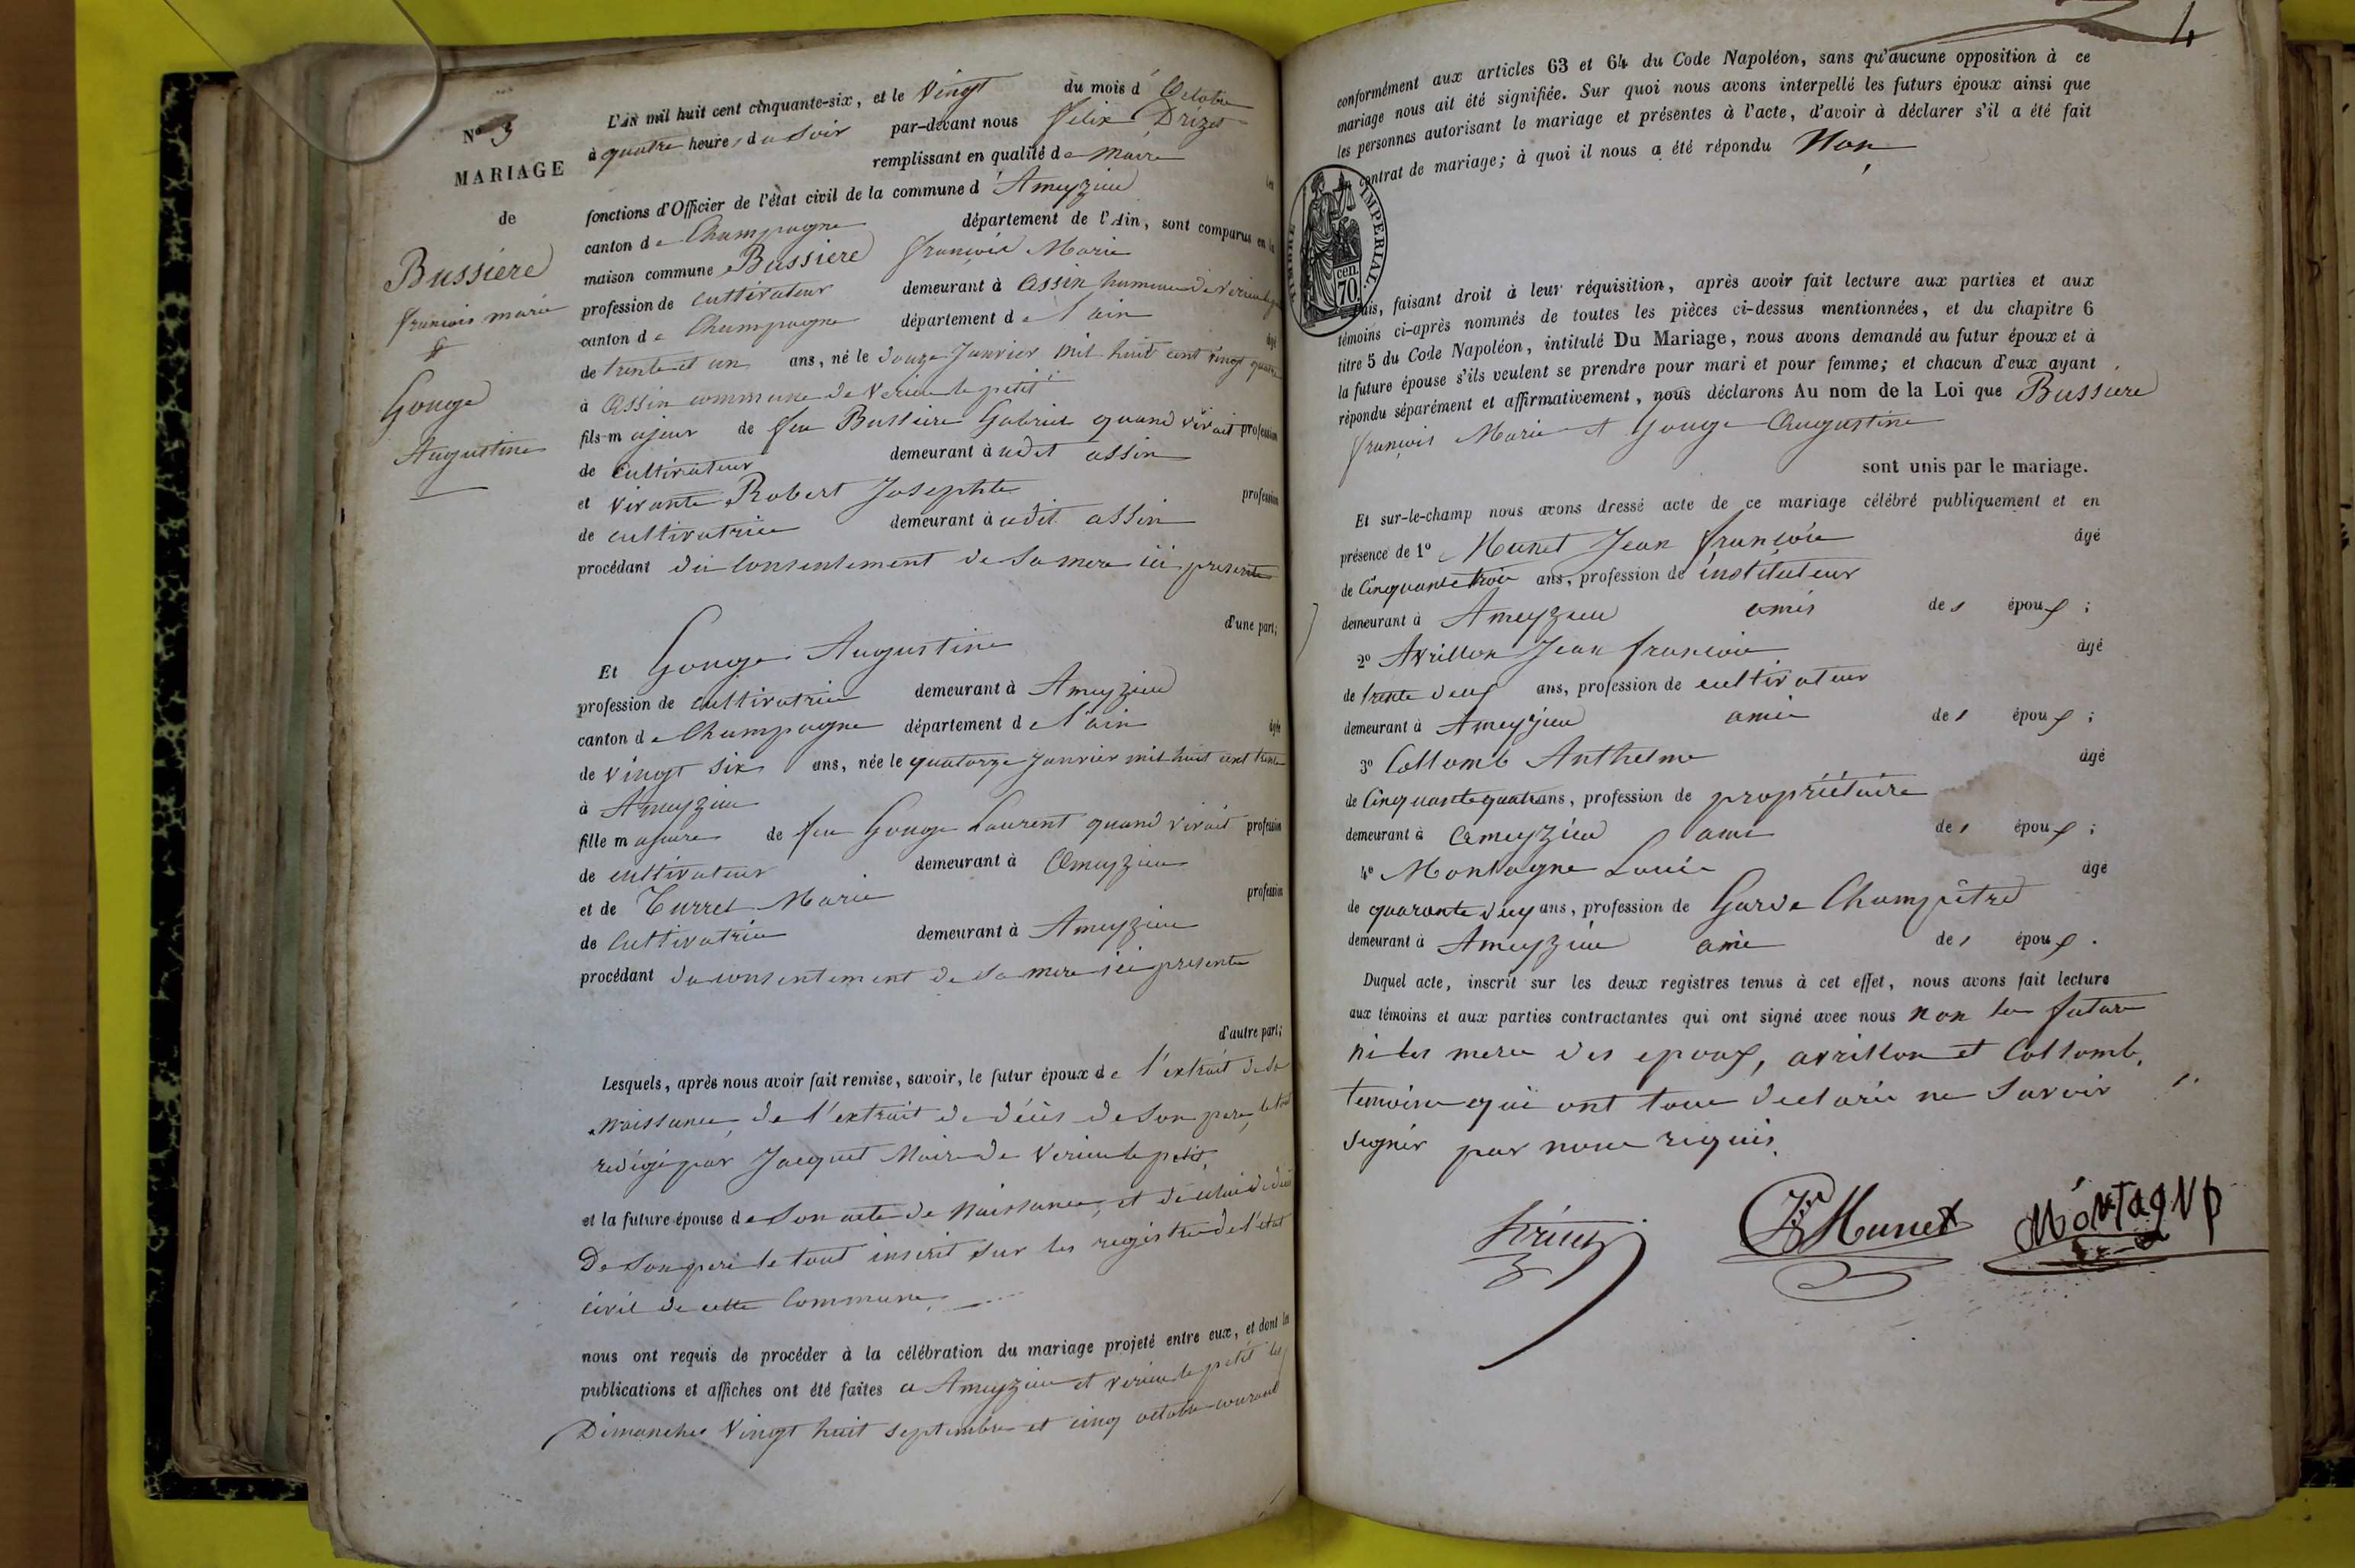 N° 3
MARIAGE
de
Bussiere
françois marie
&
Gouge
Augustine
L'AN mil huit cent cinquante-six, et le Vingt du mois d'Octobre
à quatre heures du Soir par-devant nous Felix Drizet
remplissant en qualité de Maire les
fonctions d'Officier de l'état civil de la commune d'Ameyzieu
canton de Champagne département de l'Ain, sont comparus en la
maison commune Bussiere françois Marie
profession de cultivateur demeurant à Assin hameau de Virieu
canton de Champagne département de l'ain âgé
de trente et un ans, né le douze Janvier mil huit cent vingt quatre
à Assin commune de Virieu le petit
fils majeur de feu Bussiere Gabriel quand vivait profession
de cultivateur demeurant à udit assin
et vivante Robert Josephte profession
de cultivatrice demeurant à udit assin
procédant du consentement de sa mere ici presente
d'une part;
Et Gouge Augustine
profession de cultivatrice demeurant à Ameyzieu
canton de Champagne département de l'ain âgée
de vingt six ans, née le quatorze Janvier mil huit cent trente
à Ameyzieu
fille majeure de feu Gouge Laurent quand vivait profession
de cultivateur demeurant à Ameyzieu
et de Turrel Marie profession
de cultivatrice demeurant à Ameyzieu
procédant du consentement de sa mere ici presente
d'autre part;
Lesquels, après nous avoir fait remise, savoir, le futur époux de l'extrait de sa
naissance, de l'extrait de décès de son pere, le tout
redigé par Jacquet Maire de Virieu le petit,
et la future épouse de son acte de naissance, et de celui de décès
De son pere le tout inscrit sur les registres de l'etat
civil de cette Commune
nous ont requis de procéder à la célébration du mariage projeté entre eux, et dont les
publications et affiches ont été faites a Ameyzieu et virieu le petit les
Dimanches Vingt huit septembre et cinq octobre courant
4
conformément aux articles 63 et 64 du Code Napoléon, sans qu'aucune opposition à ce
mariage nous ait été signifiée. Sur quoi nous avons interpellé les futurs époux ainsi que
les personnes autorisant le mariage et présentes à l'acte, d'avoir à déclarer s'il a été fait
contrat de mariage; à quoi il nous a été répondu Non
TIMBRE IMPERIAL
70 cen.
Puis, faisant droit à leur réquisition, après avoir fait lecture aux parties et aux
témoins ci-après nommés de toutes les pièces ci-dessus mentionnées, et du chapitre 6
titre 5 du Code Napoléon, intitulé Du Mariage, nous avons demandé au futur époux et à
la future épouse s'ils veulent se prendre pour mari et pour femme; et chacun d'eux ayant
répondu séparément et affirmativement, nous déclarons Au nom de la Loi que Bussiere
françois Marie et Gouge Augustine
sont unis par le mariage.
Et sur-le-champ nous avons dressé acte de ce mariage célébré publiquement et en
présence de 1° Munet Jean françois âgé
de Cinquante trois ans, profession de instituteur
demeurant à Ameyzieu amis des époux;
2° Avrillon Jean francois âgé
de trente deux ans, profession de cultivateur
demeurant à Ameyzieu amie des époux;
3° Collomb Anthelme âgé
de Cinquante quatre ans, profession de propriétaire
demeurant à Ameyzieu ami des époux;
4° Montagne Louis âgé
de quarante deux ans, profession de Garde Champêtre
demeurant à Ameyzieu amie des époux.
Duquel acte, inscrit sur les deux registres tenus à cet effet, nous avons fait lecture
aux témoins et aux parties contractantes qui ont signé avec nous non les futurs
ni les meres des epoux, avrillon et Collomb,
temoins qui ont tous declarés ne savoir
signér par nous requis.
Jn Munet
MONTAGNE